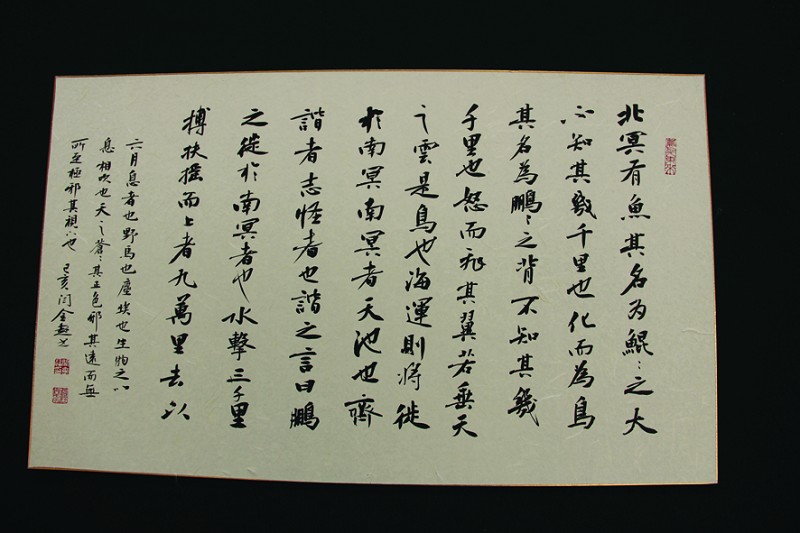 北冥有魚其名为鯤〻之大
不知其幾千里也化而為鳥
其名為鵬〻之背不知其幾
千里也怒而飛其翼若垂天
之雲是鳥也海運則將徙
於南冥南冥者天池也齊
諧者志怪者也諧之言曰鵬
之徙於南冥者也水擊三千里
搏扶搖而上者九萬里去以
六月息者也野馬也塵埃也生物之以
息相吹也天之蒼〻其正色邪其遠而無
所至極邪其視下也 己亥闫金超书